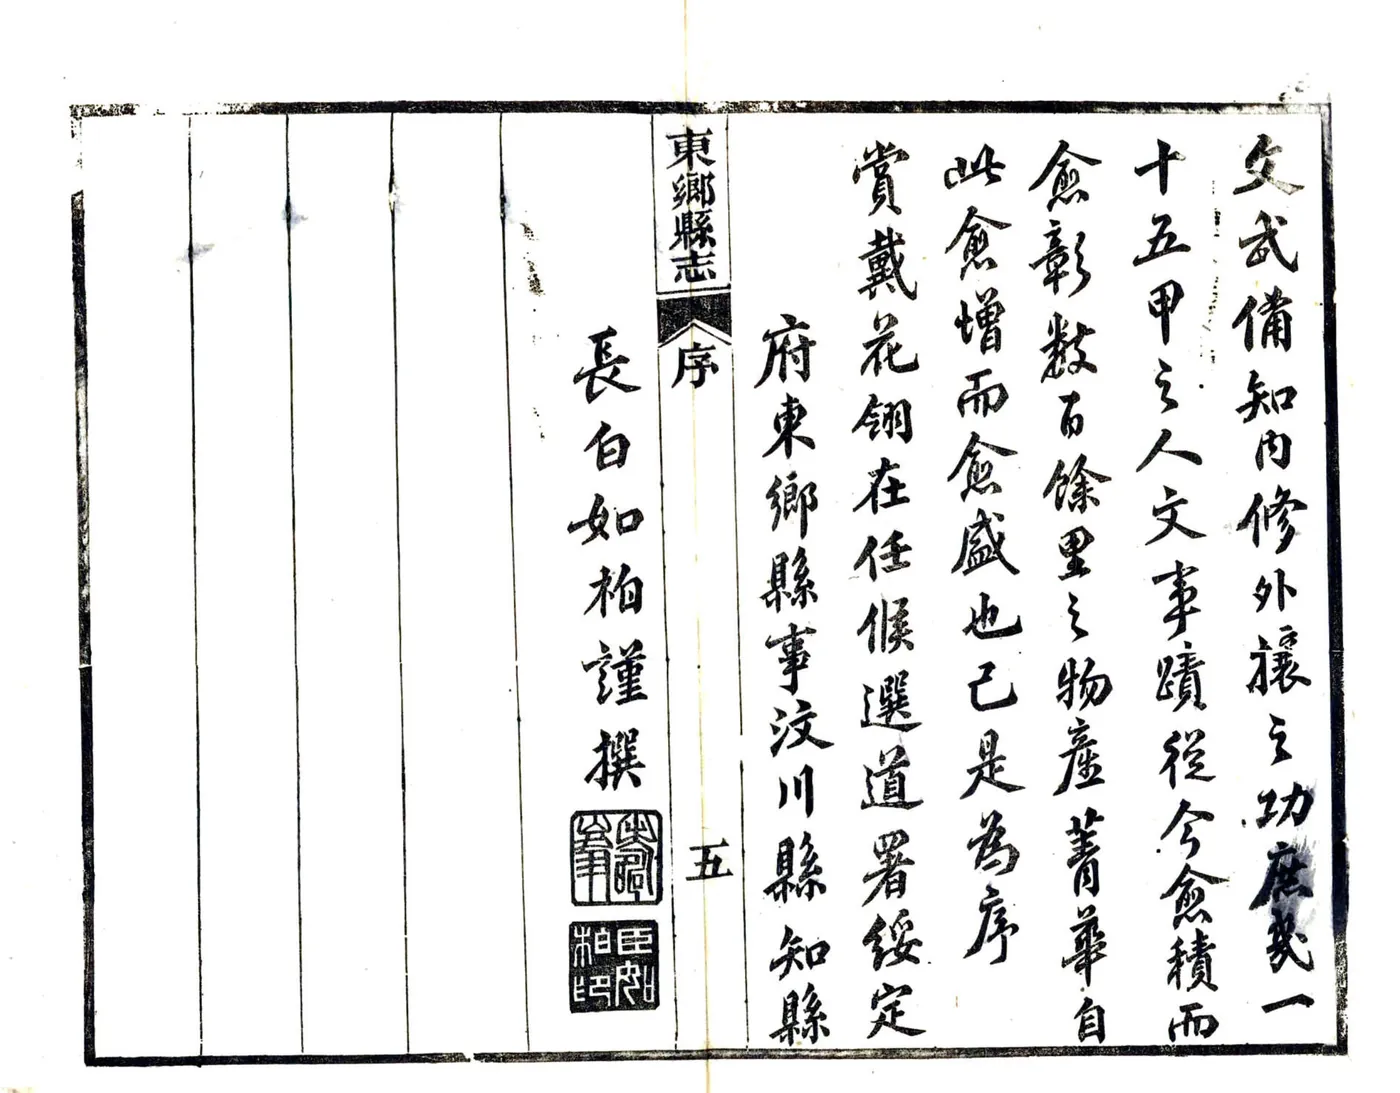 文武備知內修外攘之功庶幾一
十五甲之人文事蹟從今愈積而
愈彰數百餘里之物產菁華自
此愈增而愈盛也已是為序
賞戴花翎在任候選道署綏定
府東鄉縣事汶川縣知縣
東鄉縣志
序
五
長白如柏謹撰
臣如
柏印